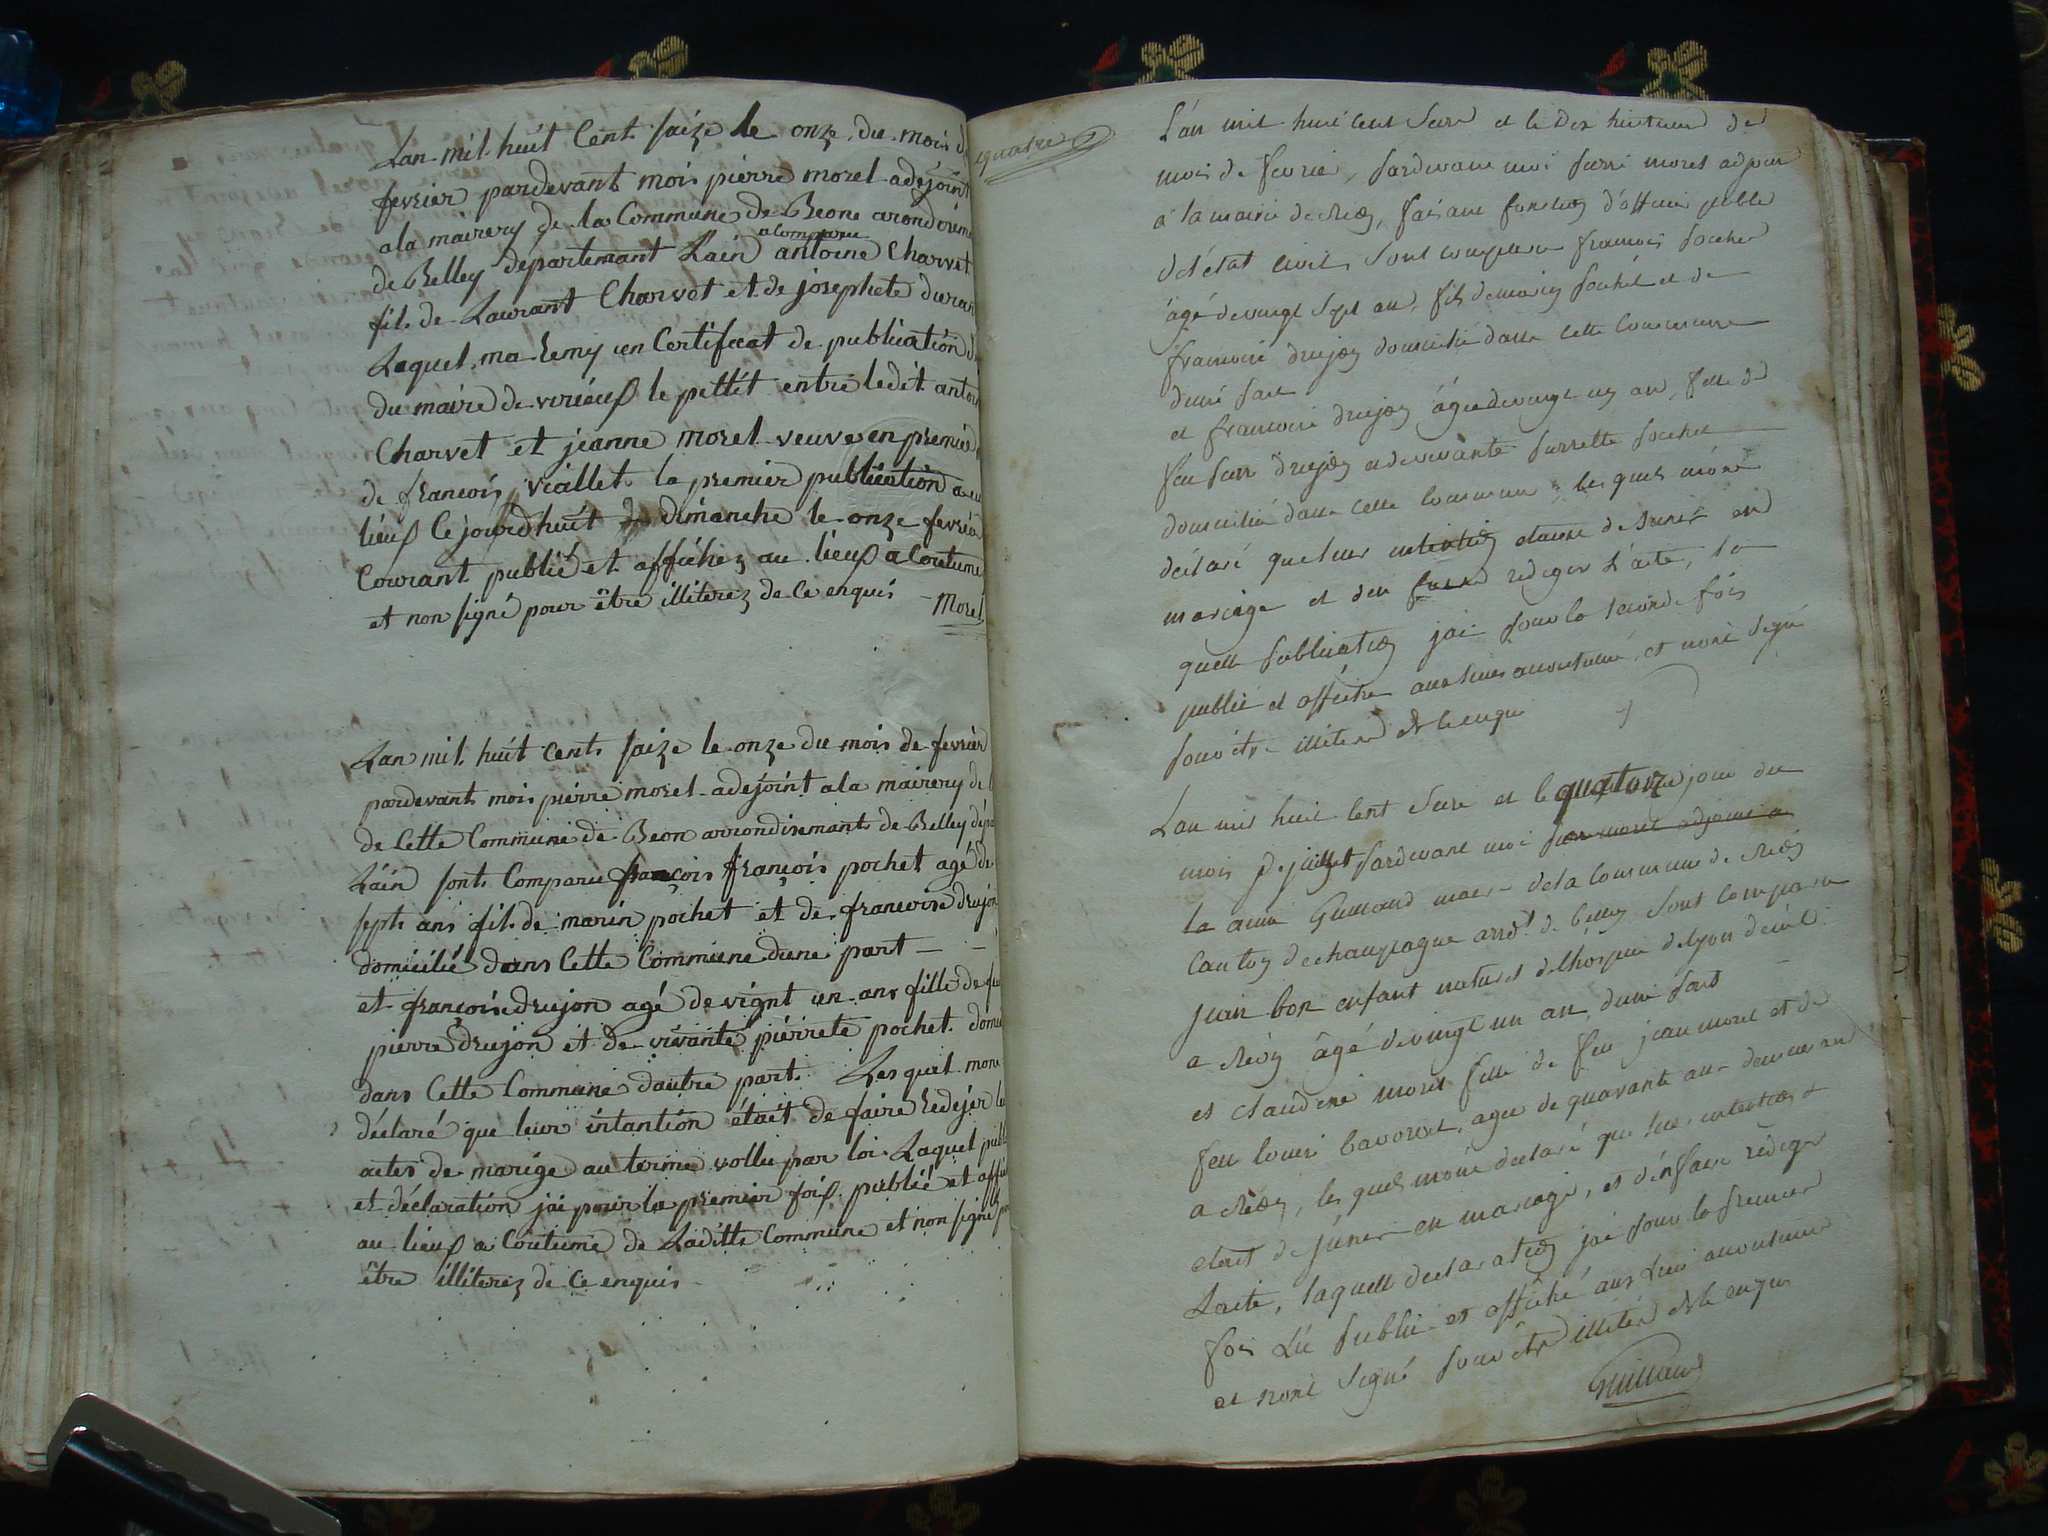 Lan mil huit Cent Saize le onze du mois d
fevrier pardevant mois pierre morel adejoint
ala mairery de la Commune de Beone arondisme
a Comparu
de Belley departemant Lain antoine Charvet
fils de Laurant Charvet et de josephete duran
Laquel ma Remy un Certificat de publication d
du maire de virieuf le pettit entre ledit antoi
Charvet et jeanne morel veuve en premier
de francois viallet la premier publication a eu
lieuf Ce jourdhuit dimanche le onze fevrie
Courant publié et affichez au lieuf a Coutume
et non signé pour être illiterez de Ce enquis Morel
Lan mil huit Cent Saize le onze du mois de fevrier
pardevant mois pierre morel adejoint ala mairery de
de Cette Commune de Beon arrondisemant de Belley dépa
Lain sont Comparu françois françois pochet agé de
sept ans fils de marin pochet et de francoise drujon
domicilié dans Cette Commune dune part
et françoise drujon agé de vignt un ans fille de feu
pierre drujon et de vivante pierrete pochet domi
dans Cette Commune dautre part Les quel mone
déclaré que leur intantion était de faire Redejér le
actes de marige au terme vollu par loi Laquel publ
et déclaration jai pour la premier foif publié et affi
au lieuf a Coutume de Laditte Commune et non signé po
être illiterez de Ce enquis
quatre
L'an mil huit cent Seize et le dix huitieme de
mois de fevrier, pardevant moi pierre morel adjoint
a la mairie de Béon, faisant fonction d'officier public
de l'état civil, sont comparu francois pochet
âgé de vingt sept an, fils de marin pochet et de
francoise drujon domicilié dans cette commune
d'une part
et francoise drujon âgée de vingt un an, fille de
feu pierre drujon et de vivante pierrette pochet
domiciliée dans cette commune, les quels m'one
déclaré que leur intention etaint de s'unir en
mariage et d'en faire rediger l'acte, la
quelle publication jai pour la seconde fois
publié et affiché aux lieux accoutumé, et n'one signé
pour être illiteré de ce enquis
L'an mil huit cent Seize et le quatorze jour du
mois de juillet pardevant moi pierre morel adjoint a
la aimé Guillaud maire de la commune de Béon
canton de champagne arrdt de belley sont comparu
jean bon enfant naturel de l'hospice de lyon demt
a Béon âgé de vingt un an, d'une part
et claudine morel fille de feu jean morel et de
feu louise bavorel, agée de quarante an demeurant
a Béon, les quels m'one declaré que leur intention
etait de s'unir en mariage, et d'en faire rediger
L'acte, laquelle declaration jai pour la premier
fois Lu publié et affiché aux lieu accoutumé
et n'one signé pour être illiteré de ce enquis
Guillaud